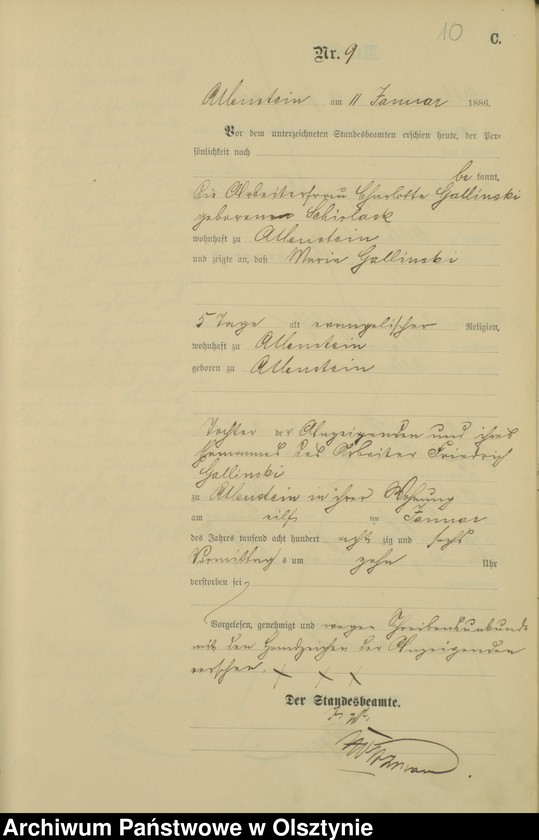 10
C.
Nr. 9
Allenstein am 11 Januar 1886.
Vor dem unterzeichneten Standesbeamten erschien heute, der Per-
sönlichkeit nach
be kannt,
die Arbeiterfrau Charlotte Gallinski
geborene Schirlack
wohnhaft zu Allenstein
und zeigte an, daß Maria Gallinski
5 Tage alt evangelischer Religion,
wohnhaft zu Allenstein
geboren zu Allenstein
Tochter der Anzeigenden und ihres
Ehemannes des Arbeiter Friedrich
Gallinski
zu Allenstein in ihrer Wohnung
am eilf ten Januar
des Jahres tausend acht hundert acht zig und sechs
Vormittag s um zehn Uhr
verstorben sei
Vorgelesen, genehmigt und wegen Schreibensunkunde
mit den Handzeichen der Anzeigenden
versehen. X X X
Der Standesbeamte.
Archiwum Państwowe w Olsztynie